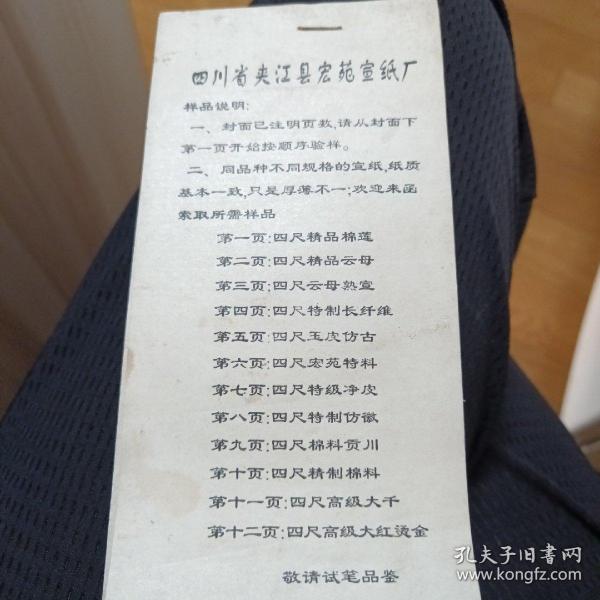 四川省夹江县宏苑宣纸厂
样品说明:
一、封面已注明页数,请从封面下
第一页开始按顺序验样。
二、同品种不同规格的宣纸,纸质
基本一致,只是厚薄不一;欢迎来函
索取所需样品
第一页:四尺精品棉莲
第二页:四尺精品云母
第三页:四尺云母熟宣
第四页:四尺特制长纤维
第五页:四尺玉皮仿古
第六页:四尺宏苑特料
第七页:四尺特级净皮
第八页:四尺特制仿徽
第九页:四尺棉料贡川
第十页:四尺精制棉料
第十一页:四尺高级大千
第十二页:四尺高级大红烫金
敬请试笔品鉴
孔夫子旧书网
www.kongfz.com